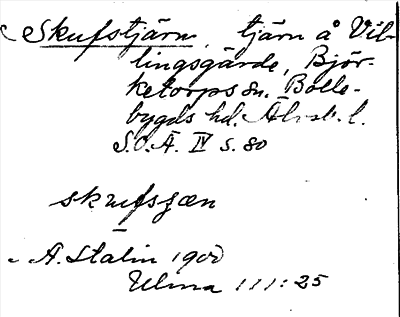 Skufstjärn, tjärn å Vil-
lingsgärde, Björ-
ketorps sn. Bolle-
bygds hd. Älvsb. l.
S.O.Ä. IV s. 80
skufsjæn
A. Stalin 1900
Ulma 111:25